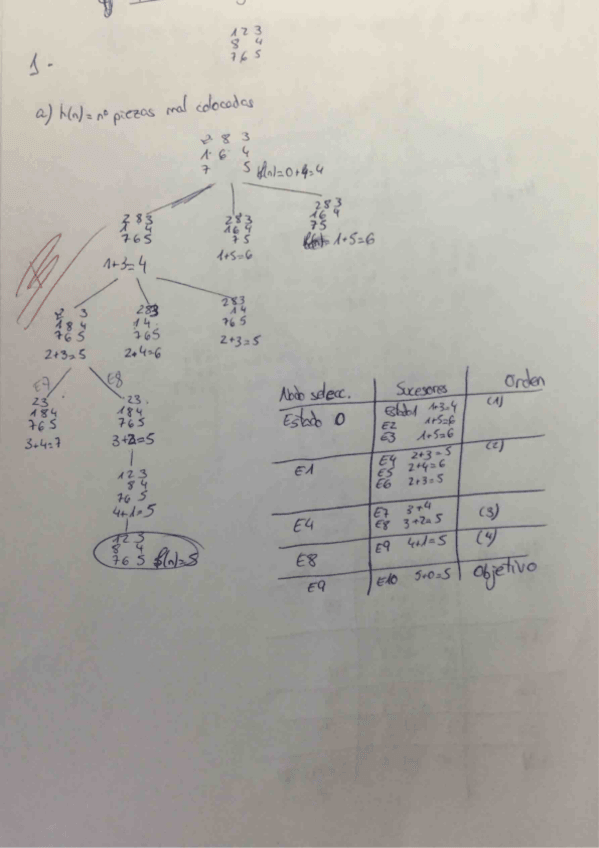 1 2 3
8 4
7 6 5
1.-
a) h(n) = nº piezas mal colocadas
2 8 3
1 6 4
7 5 f(n)=0+4=4
2 8 3
1 4
7 6 5
1+3=4
2 8 3
1 6 4
7 5
1+5=6
2 8 3
1 6 4
7 5
1+5=6
2 3
1 8 4
7 6 5
2+3=5
2 8 3
1 4
7 6 5
2+4=6
2 8 3
1 4
7 6 5
2+3=5
E7
2 3
1 8 4
7 6 5
3+4=7
E8
2 3
1 8 4
7 6 5
3+2=5
1 2 3
8 4
7 6 5
4+1=5
1 2 3
8 4
7 6 5 f(n)=5
Nodo selecc. Sucesores Orden
Estado 0 Estado1 1+3=4 (1)
E2 1+5=6
E3 1+5=6
E1 E4 2+3=5 (2)
E5 2+4=6
E6 2+3=5
E4 E7 3+4 (3)
E8 3+2=5
E8 E9 4+1=5 (4)
E9 E10 5+0=5 Objetivo